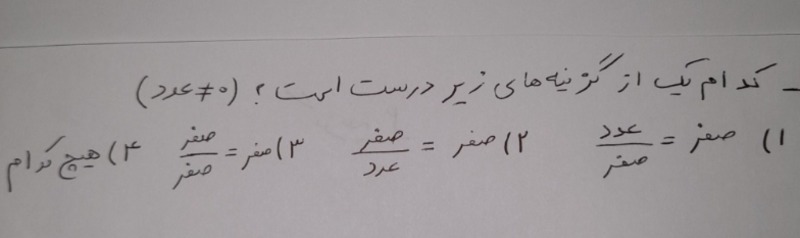 - کدام یک از گزینه‌های زیر درست است؟ (عدد ≠ ۰)
۱) صفر = عدد/صفر ۲) صفر = صفر/عدد ۳) صفر = صفر/صفر ۴) هیچ کدام